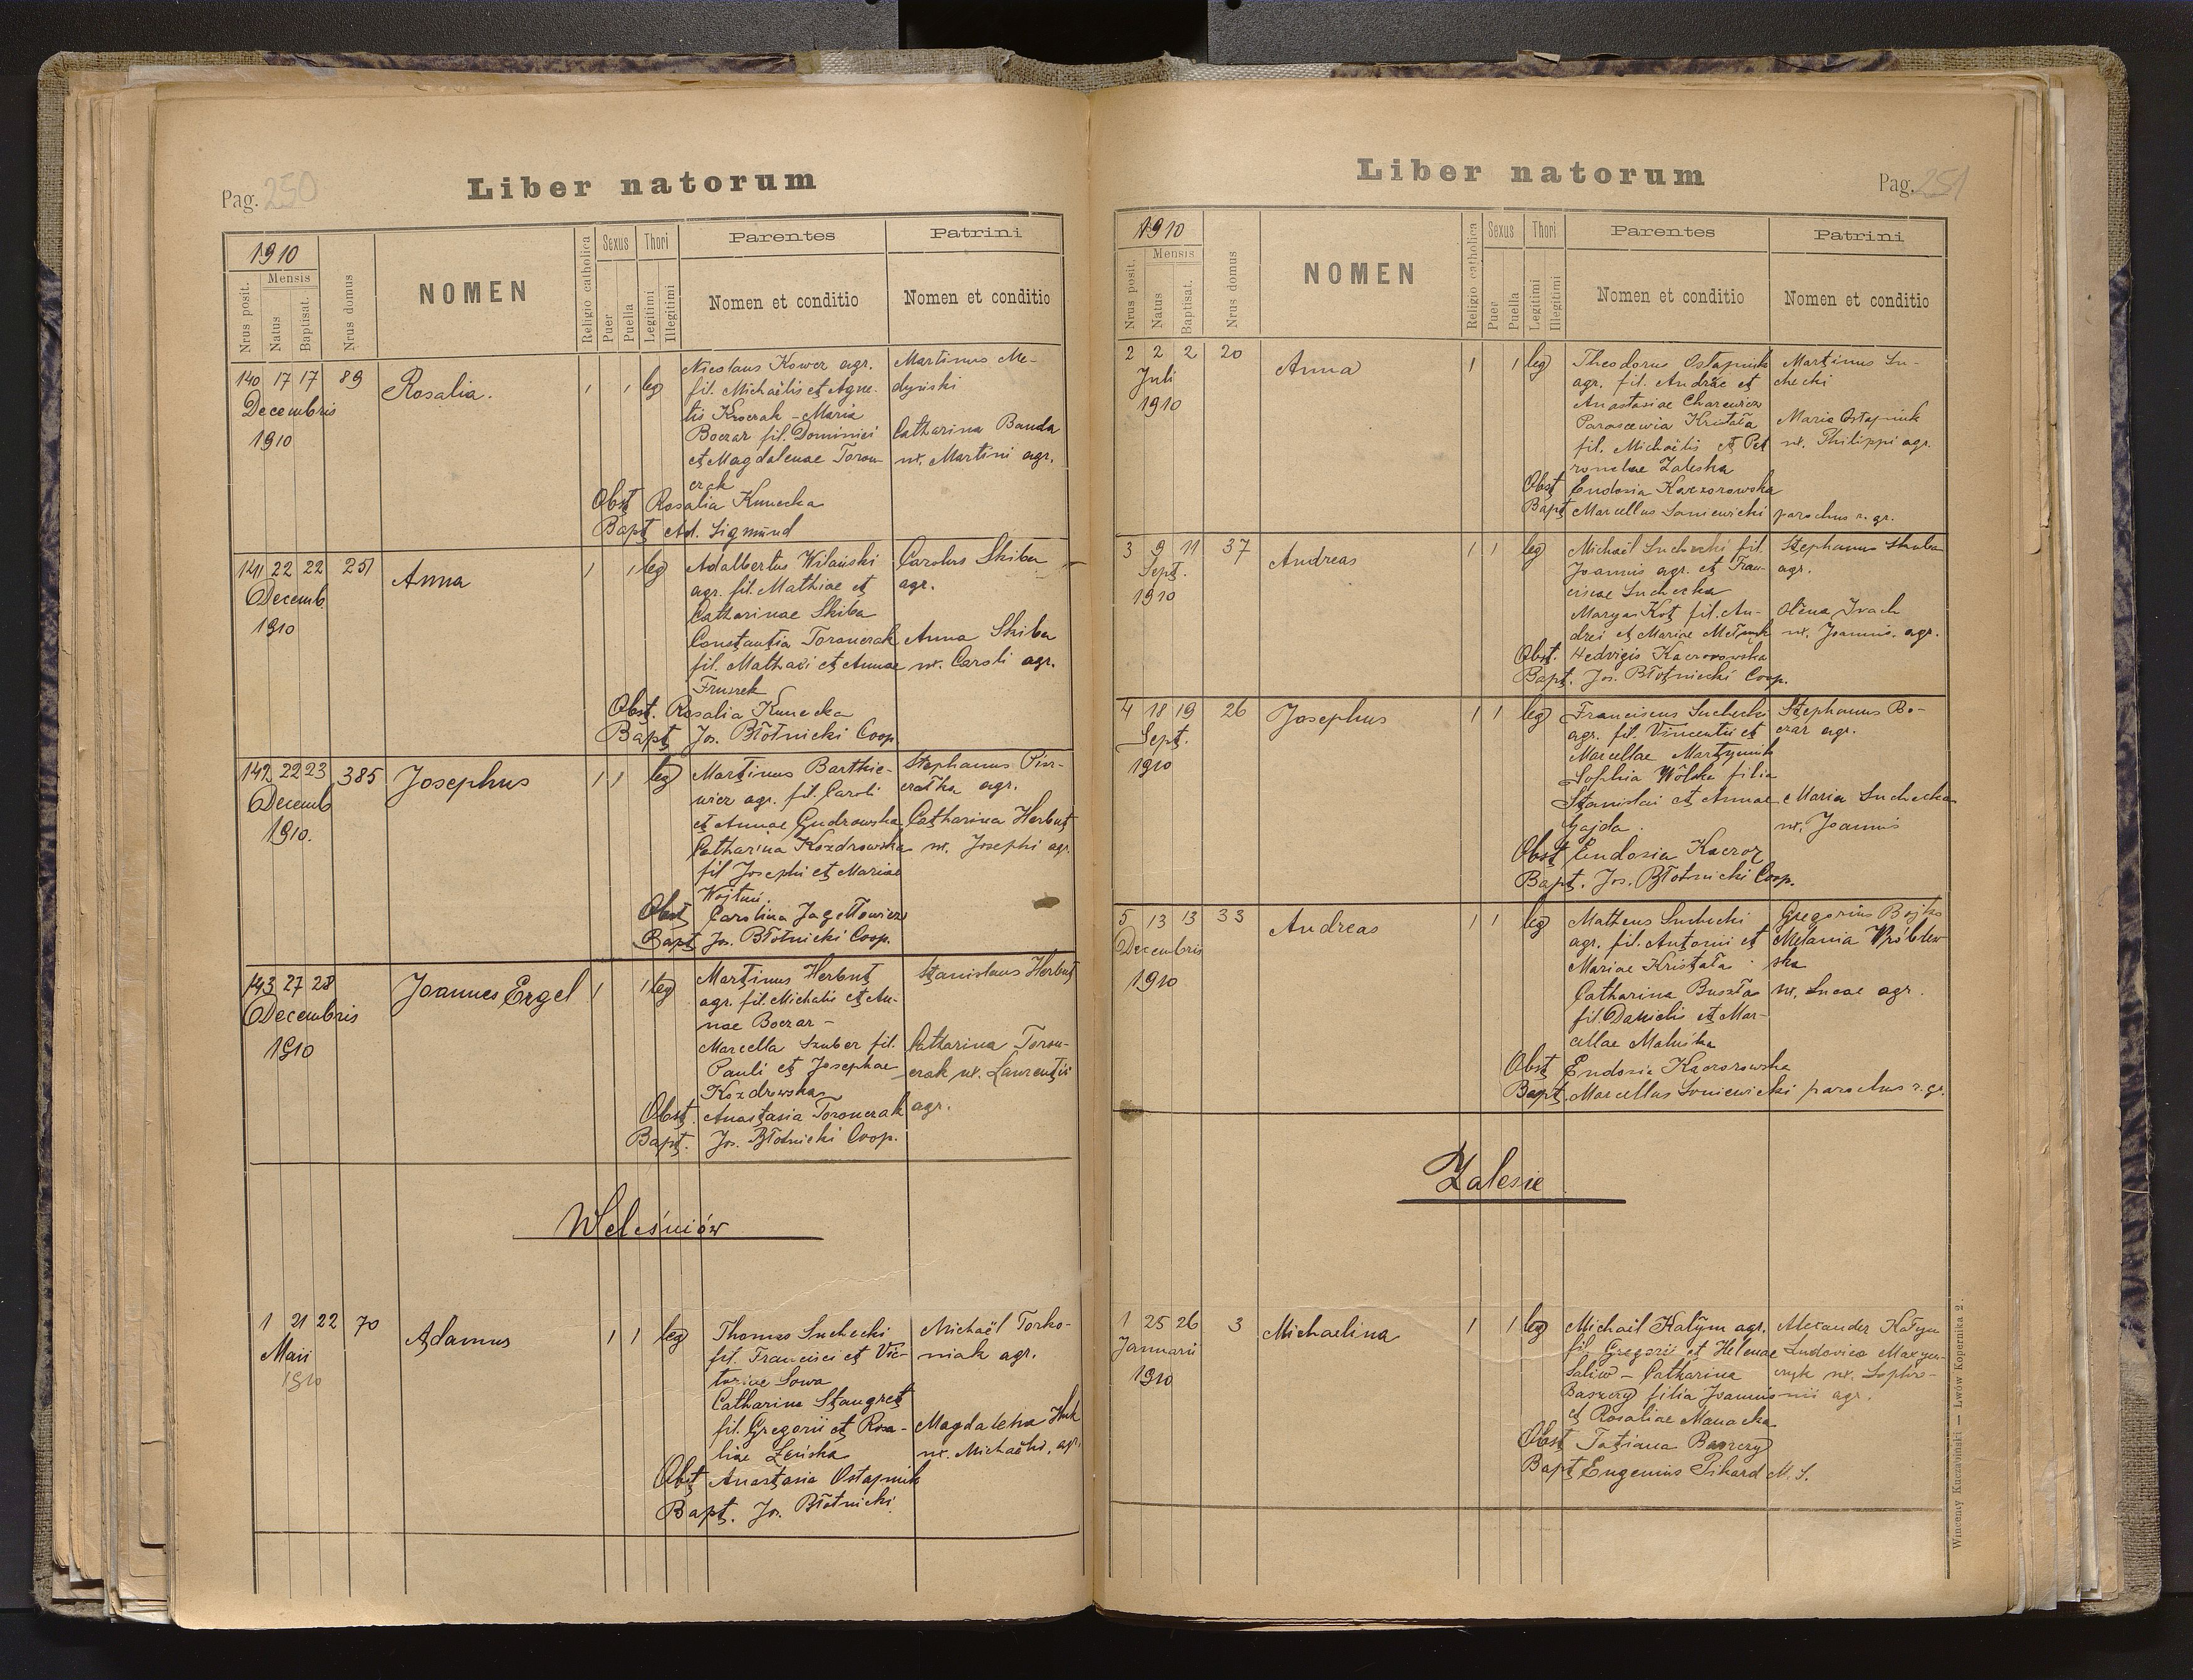 Pag. 250
Liber natorum
1910
Nrus posit.
Mensis
Natus
Baptisat.
Nrus domus
NOMEN
Religio catholica
Sexus
Puer
Puella
Thori
Legitimi
Illegitimi
Parentes
Nomen et conditio
Patrini
Nomen et conditio
140 17 17 89
Decembris
1910
Rosalia.
1 1 leg
Nicolaus Kowcz agr.
fil. Michaëlis et Agne-
tis Krocrak - Maria
Boczar fil. Dominici
et Magdalenae Toron-
czak
Martinus Me-
dyński
Catharina Banda
ux. Martini agr.
Obst Rosalia Kunecka
Bapt Ad. Sigmünd
141 22 22 251
Decemb
1910
Anna
1 1 leg
Adalbertus Wilański
agr. fil. Mathiae et
Catharinae Skiba
Constantia Toronczak
fil. Mathaei et Annae
Fruszek
Carolus Skiba
agr.
Anna Skiba
ux. Caroli agr.
Obst. Rosalia Kunecka
Bapt Jos. Błotnicki Coop
142 22 23 385
Decemb
1910.
Josephus
1 1 leg
Martinus Barthie-
wicz agr. fil. Caroli
et Annae Gudrowska
Catharina Kozdrowska
fil Josephi et Mariae
Wojtuń.
Stephanus Pisr-
czatka agr.
Catharina Herbut
ux. Josephi agr.
Obst Carolina Jagełłowicz
Bapt Jos. Błotnicki Coop.
143 27 28
Decembris
1910
Joannes Ergel
1 1 leg
Martinus Herbut
agr. fil. Michalis et An-
nae Boczar -
Marcella Szuber fil.
Pauli et Josephae
Kozdrowska
Stanislaus Herbut
Catharina Toron-
czak ux. Laurentii
agr.
Obst. Anastasia Toronczak
Bapt. Jos. Błotnicki Coop.
Weleśniów
1 21 22 70
Maii
1910
Adamus
1 1 leg
Thomas Suchecki
fil. Francisci et Vic-
toriae Sowa
Catharina Stangret
fil. Gregorii et Rosa-
liae Zeńska
Michaël Torko-
niak agr.
Magdalena Huk
ux. Michaëlis, agr.
Obst Anastasia Ostapiuk
Bapt. Jos. Błotnicki
Liber natorum
Pag. 251
1910
Nrus posit.
Mensis
Natus
Baptisat.
Nrus domus
NOMEN
Religio catholica
Sexus
Puer
Puella
Thori
Legitimi
Illegitimi
Parentes
Nomen et conditio
Patrini
Nomen et conditio
2 2 2 20
Juli
1910
Anna
1 1 leg
Theodorus Ostapiuk
agr. fil. Andräe et
Anastasiae Charewicz
Parascewia Kristała
fil. Michaëlis et Pet
ronelae Zaleska
Martinus Su-
checki
Maria Ostapiuk
ux. Philippi agr.
Obst Eudosia Kaczorowska
Bapt Marcellus Soniewicki parochus r. gr.
3 9 11 37
Sept.
1910
Andreas
1 1 leg
Michaël Suchecki fil.
Joannis agr. et Fran-
ciscae Suchecka
Marya Kot fil. An-
drei et Mariae Melnyk
Stephanus Skuba
agr.
Olena Ivach
ux. Joannis. agr.
Obst. Hedvigis Kaczorowska
Bapt. Jos. Błotnicki Coop.
4 18 19 26
Sept.
1910
Josephus
1 1 leg
Franciscus Suchecki
agr. fil. Vincentii et
Marcellae Martyniuk
Sophia Wolska filia
Stanislai et Annae
Gajda.
Stephanus Bo-
czar agr.
Maria Suchecka
ux. Joannis
Obst Eudosia Kaczor
Bapt. Jos. Błotnicki Coop.
5 13 13 33
Decembris
1910
Andreas
1 1 leg
Matheus Suchecki
agr. fil. Antonii et
Mariae Kristała
Catharina Buszta
fil. Danielis et Mar-
cellae Malińska
Gregorius Bojko
Melania Wróblew
ska
ux. Lucae agr.
Obst Eudosia Kaczorowska
Bapt Marcellus Soniewicki parochus r. gr.
Zalesie
1 25 26 3
Januarii
1910
Michaelina
1 1 leg
Michaël Kałym agr.
fil. Gregorii et Helenae
Saliw - Catharina
Baszczy filia Joannis
et Rosaliae Manacka
Alexander Kałym
Ludovica Maxym-
czyk ux. Sophro-
nii agr.
Obst Tatiana Baszczy
Bapt Eugenius Pikard M. S.
Wincenty Kuczabiński — Lwów Kopernika 2.